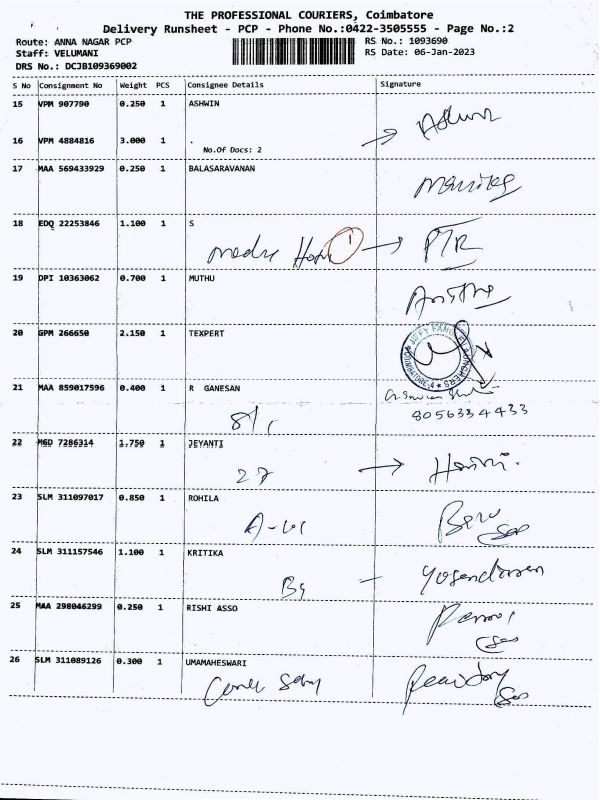 THE PROFESSIONAL COURIERS, Coimbatore
Delivery Runsheet - PCP - Phone No.:0422-3505555 - Page No.:2
Route: ANNA NAGAR PCP RS No.: 1093690
Staff: VELUMANI RS Date: 06-Jan-2023
DRS No.: DCJB109369002
S No Consignment No Weight PCS Consignee Details Signature
15 VPM 907790 0.250 1 ASHWIN
Ashwin
16 VPM 4884816 3.000 1 .
No.Of Docs: 2
17 MAA 569433929 0.250 1 BALASARAVANAN
18 EDQ 22253846 1.100 1 S
1
19 DPI 10363062 0.700 1 MUTHU
20 GPM 266650 2.150 1 TEXPERT
21 MAA 859017596 0.400 1 R GANESAN
8056334433
8/1
22 MGD 7286314 1.750 1 JEYANTI
27
23 SLM 311097017 0.850 1 ROHILA
24 SLM 311157546 1.100 1 KRITIKA
25 MAA 298046299 0.250 1 RISHI ASSO
26 SLM 311089126 0.300 1 UMAMAHESWARI